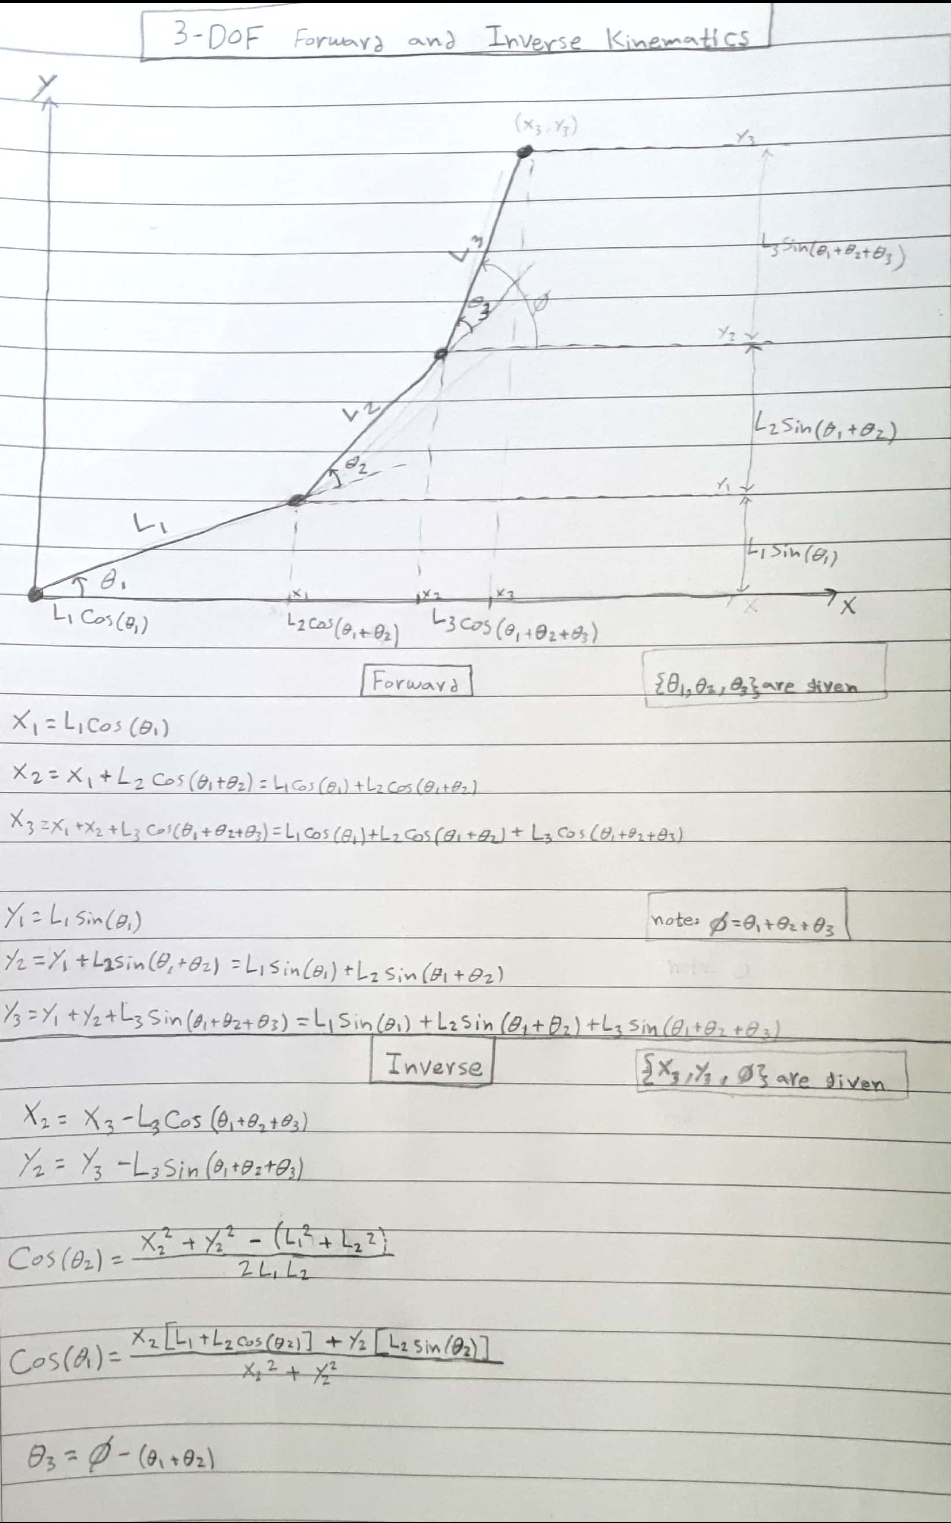 3-DOF Forward and Inverse Kinematics
Y
(x₃, y₃)
Y₃
L₃
L₃ Sin(θ₁+θ₂+θ₃)
θ₃
ϕ
Y₂
L₂
L₂ Sin(θ₁+θ₂)
θ₂
Y₁
L₁
L₁ Sin(θ₁)
θ₁
x₁ x₂ x₃ X X
L₁ Cos(θ₁) L₂ cos(θ₁+θ₂) L₃ cos(θ₁+θ₂+θ₃)
Forward
{θ₁,θ₂,θ₃} are given
X₁ = L₁ Cos(θ₁)
X₂ = X₁ + L₂ Cos(θ₁+θ₂) = L₁ Cos(θ₁) + L₂ Cos(θ₁+θ₂)
X₃ = X₁ + X₂ + L₃ Cos(θ₁+θ₂+θ₃) = L₁ Cos(θ₁) + L₂ Cos(θ₁+θ₂) + L₃ Cos(θ₁+θ₂+θ₃)
Y₁ = L₁ Sin(θ₁)
note: ϕ = θ₁+θ₂+θ₃
Y₂ = Y₁ + L₂ sin(θ₁+θ₂) = L₁ sin(θ₁) + L₂ sin(θ₁+θ₂)
Y₃ = Y₁ + Y₂ + L₃ Sin(θ₁+θ₂+θ₃) = L₁ Sin(θ₁) + L₂ Sin(θ₁+θ₂) + L₃ Sin(θ₁+θ₂+θ₃)
Inverse
{X₃, Y₃, ϕ} are given
X₂ = X₃ - L₃ Cos(θ₁+θ₂+θ₃)
Y₂ = Y₃ - L₃ Sin(θ₁+θ₂+θ₃)
Cos(θ₂) = (X₂² + Y₂² - (L₁² + L₂²)) / 2 L₁ L₂
Cos(θ₁) = (X₂[L₁ + L₂ cos(θ₂)] + Y₂[L₂ sin(θ₂)]) / X₂² + Y₂²
θ₃ = ϕ - (θ₁+θ₂)